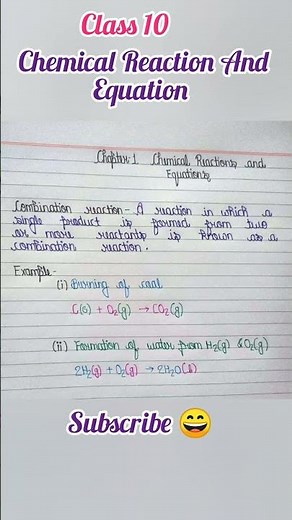 Class 10
Chemical Reaction And
Equation
Chapter:1 Chemical Reactions and
Equations
Combination reaction - A reaction in which a
single product is formed from two
or more reactants is known as a
combination reaction.
Example -
(i) Burning of coal
C(s) + O₂(g) → CO₂(g)
(ii) Formation of water from H₂(g) & O₂(g)
2H₂(g) + O₂(g) → 2H₂O(l)
Subscribe 😄